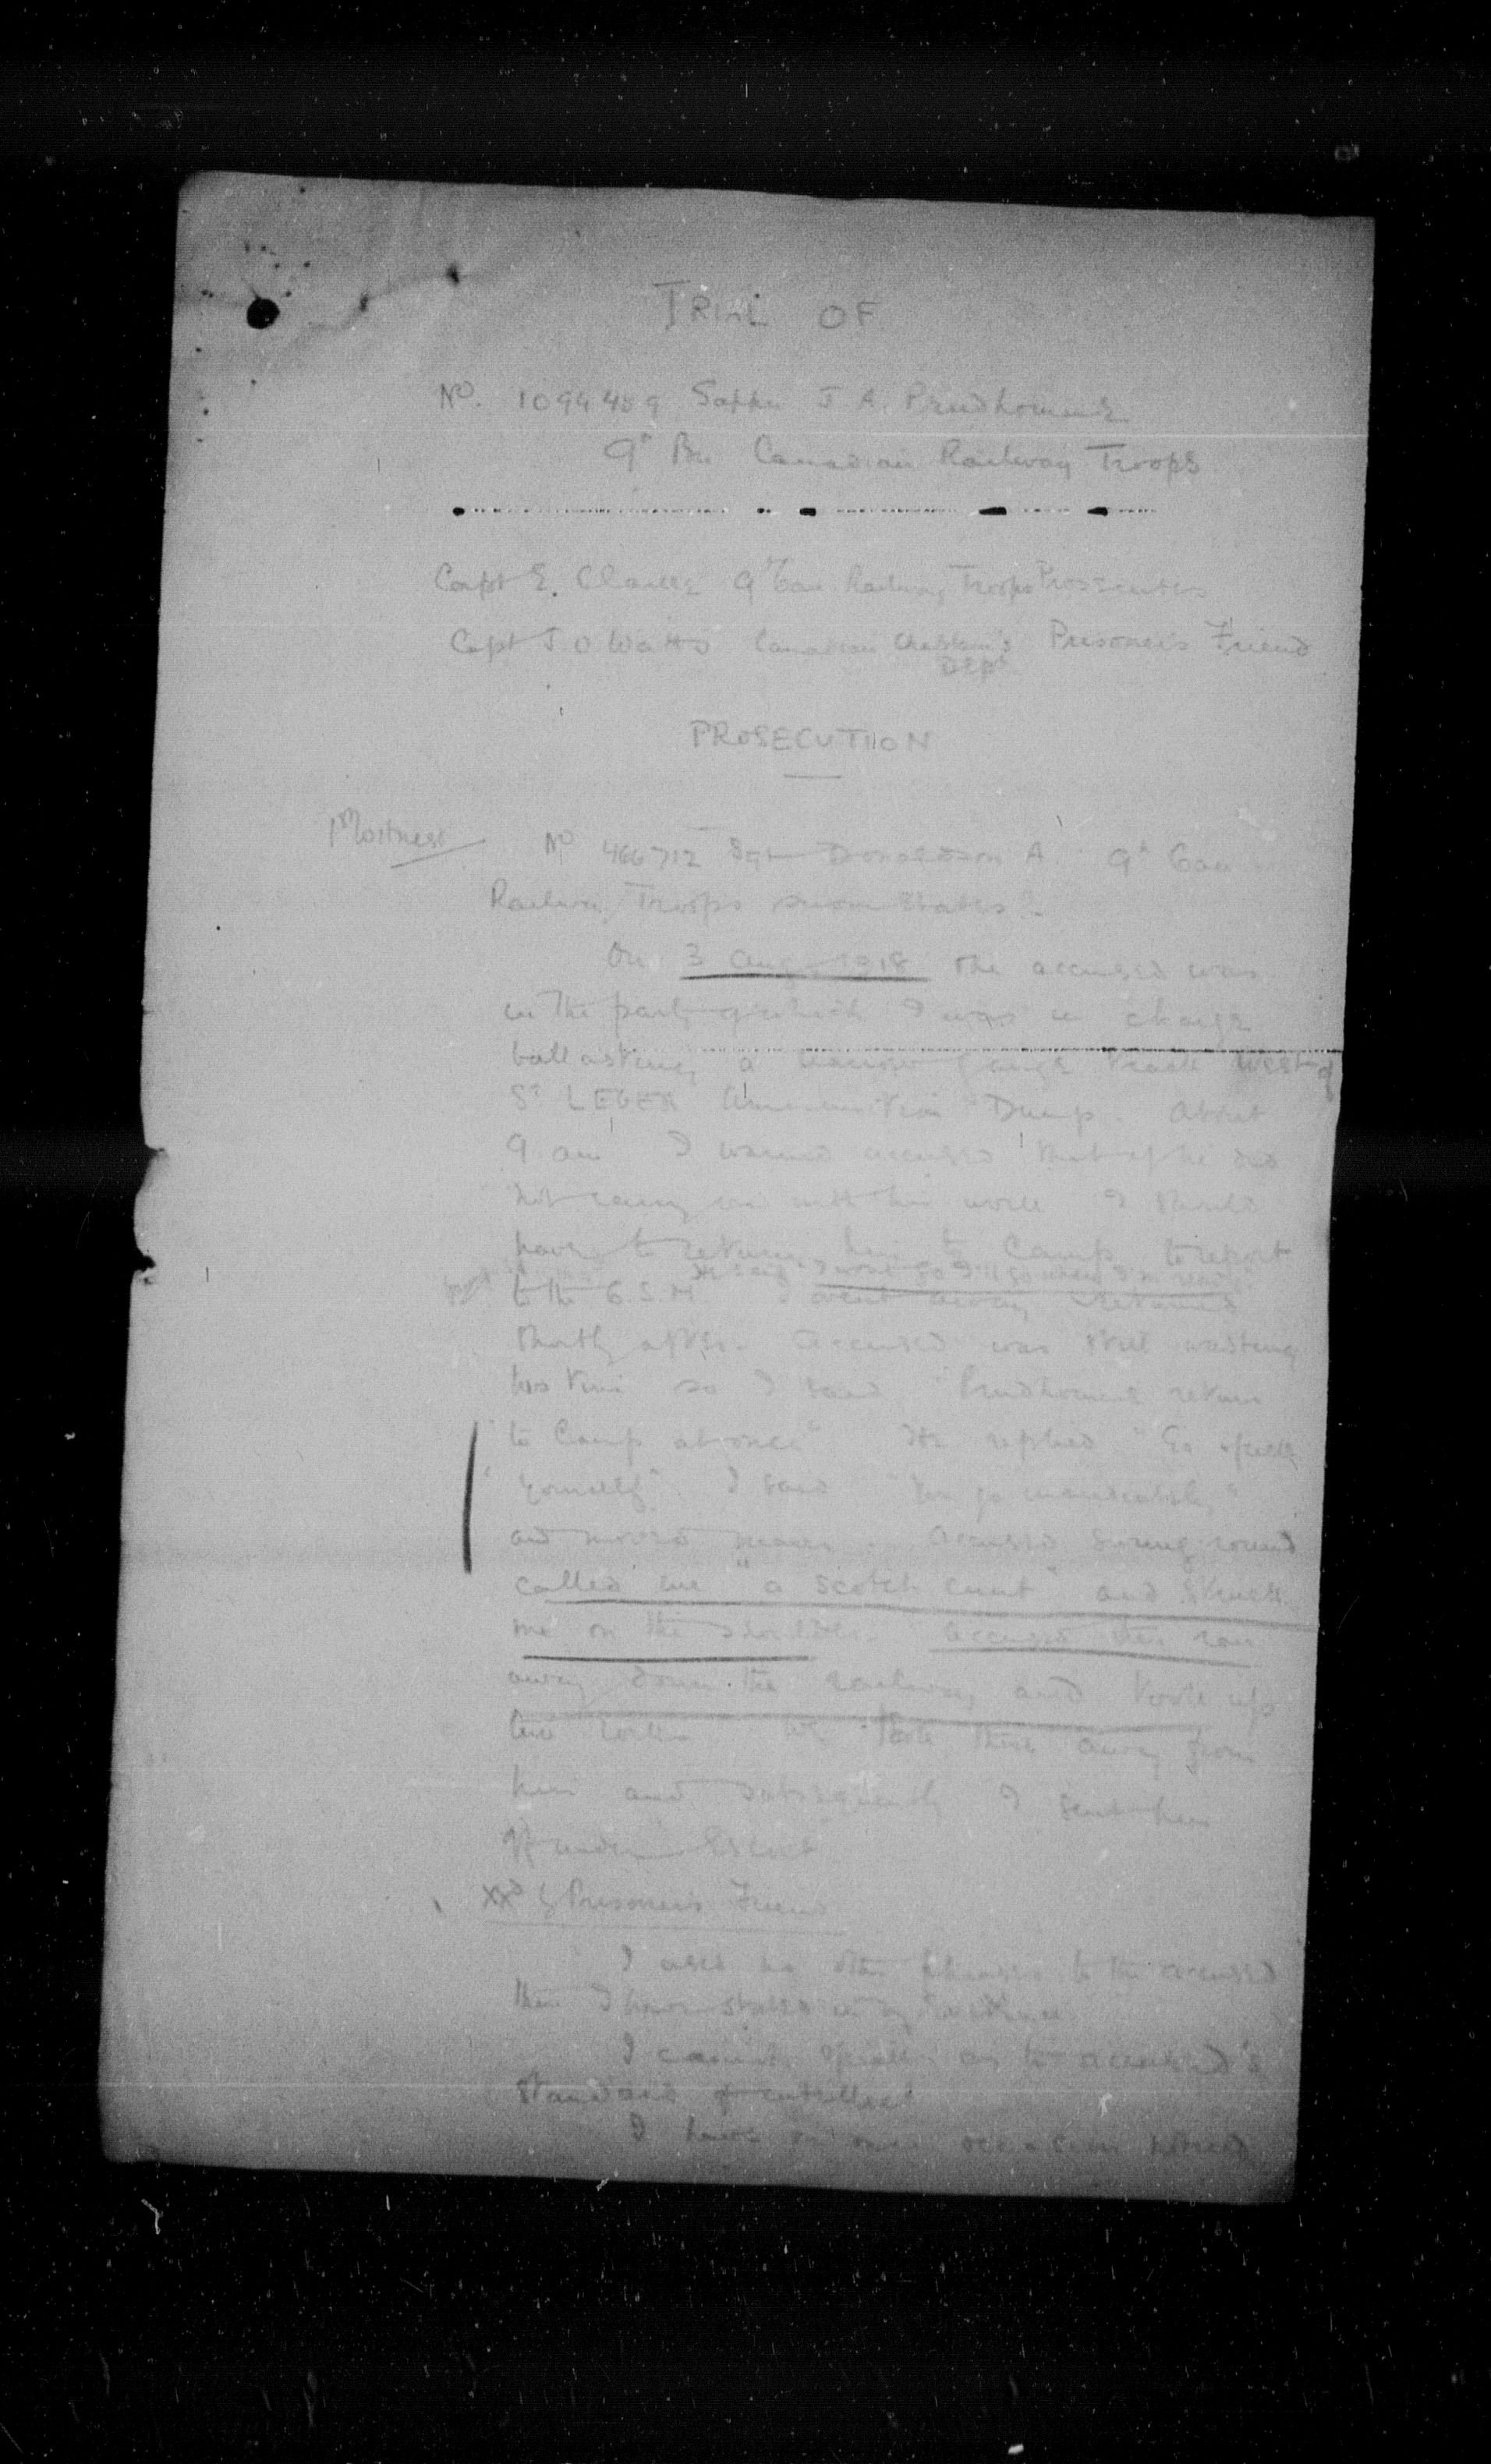 TRIAL OF
No. 1094489 Sapper J. A. Prudhomme
9th Bn Canadian Railway Troops
Capt E. Clarke 9th Can Railway Troops Prosecutor
Capt J O Watts Canadian Chaplain's Prisoner's Friend
Dept
PROSECUTION
1st Witness
No 466712 Sgt Donaldson A. 9th Can
Railway Troops sworn states:-
On 3 Aug 1918 the accused was
in the party of which I was in charge
ballasting a narrow gauge track West of
St LEGER Ammunition Dump. About
9 am I warned accused that if he did
not carry on with his work I should
have to return him to Camp to report
He said "I wont go I'll go when I'm ready"
to the C.S.M. I went away returned
shortly after. Accused was still wasting
his time so I said "Prudhomme return
to Camp at once" He replied "Go & fuck
yourself". I said "You go immediately"
and moved nearer. Accused swung round
called me "a scotch cunt" and struck
me on the shoulder. Accused then ran
away down the railway and took up
two He took them away from
him and subsequently I sent him
off under Escort
XXd by Prisoner's Friend
I used no other phrases to the accused
than I have stated in my evidence
I cannot speak as to accused's
standard of intellect
I have on occasion noticed